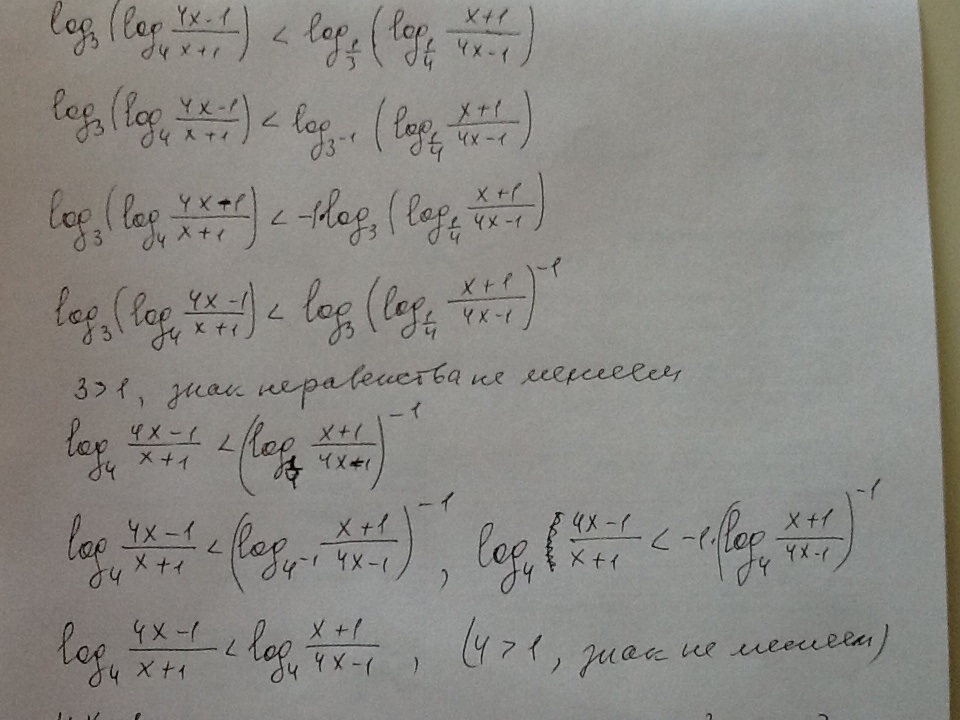 log₃(log₄ (4x-1)/(x+1)) < log_(1/3)(log_(1/4) (x+1)/(4x-1))
log₃(log₄ (4x-1)/(x+1)) < log_(3⁻¹)(log_(1/4) (x+1)/(4x-1))
log₃(log₄ (4x-1)/(x+1)) < -1·log₃(log_(1/4) (x+1)/(4x-1))
log₃(log₄ (4x-1)/(x+1)) < log₃(log_(1/4) (x+1)/(4x-1))⁻¹
3>1, знак неравенства не меняем
log₄ (4x-1)/(x+1) < (log_(1/4) (x+1)/(4x-1))⁻¹
log₄ (4x-1)/(x+1) < (log_(4⁻¹) (x+1)/(4x-1))⁻¹, log₄ (4x-1)/(x+1) < -1·(log₄ (x+1)/(4x-1))⁻¹
log₄ (4x-1)/(x+1) < log₄ (x+1)/(4x-1), (4>1, знак не меняем)